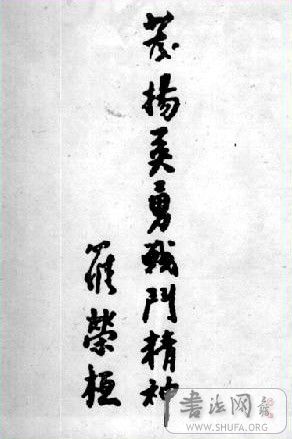 發揚英勇戰鬥精神
羅榮桓
书法网
WWW.SHUFA.ORG